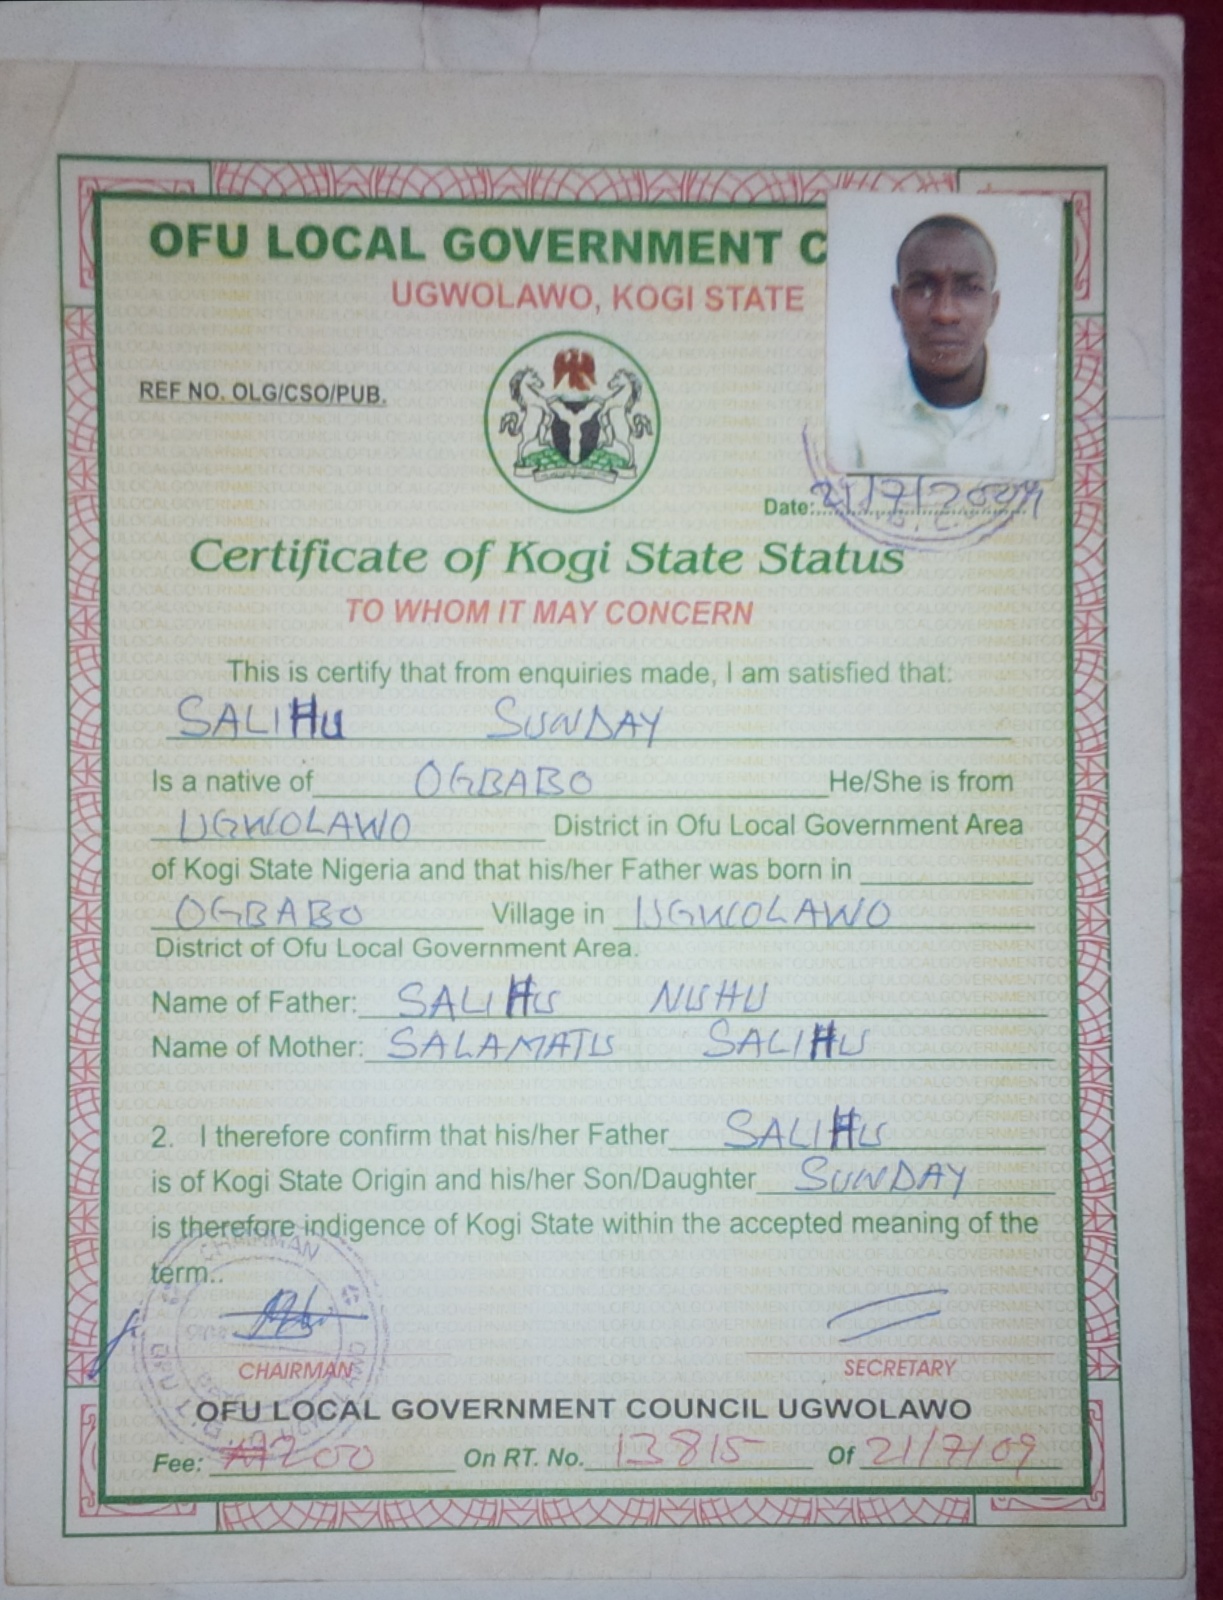 OFU LOCAL GOVERNMENT C
UGWOLAWO, KOGI STATE
REF NO. OLG/CSO/PUB.
Date: 21/7/2009
Certificate of Kogi State Status
TO WHOM IT MAY CONCERN
This is certify that from enquiries made, I am satisfied that:
SALIHU SUNDAY
Is a native of OGBABO He/She is from
UGWOLAWO District in Ofu Local Government Area
of Kogi State Nigeria and that his/her Father was born in
OGBABO Village in UGWOLAWO
District of Ofu Local Government Area.
Name of Father: SALIHU NUHU
Name of Mother: SALAMATU SALIHU
2. I therefore confirm that his/her Father SALIHU
is of Kogi State Origin and his/her Son/Daughter SUNDAY
is therefore indigence of Kogi State within the accepted meaning of the
term..
CHAIRMAN
CHAIRMAN SECRETARY
OFU LOCAL GOVERNMENT COUNCIL UGWOLAWO
Fee: ₦200 On RT. No. 13815 Of 21/7/09